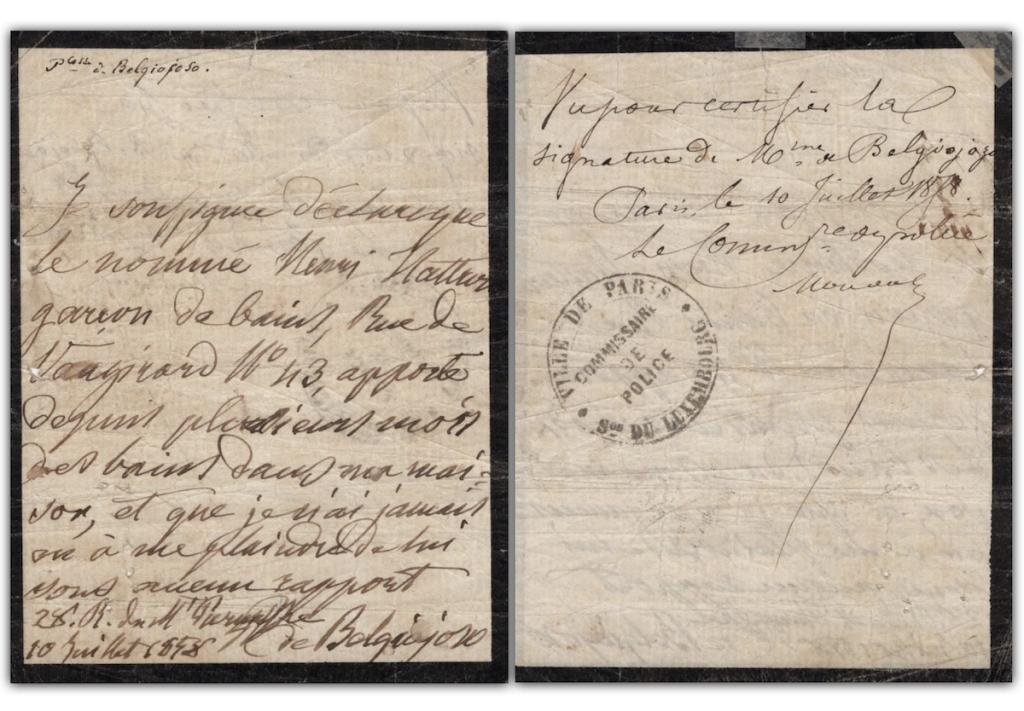 Pcesse de Belgiojoso.
Je soussigné déclare que
le nommé Henri
garçon de bains, Rue de
Vaugirard No 43, apporte
depuis plusieurs mois
des bains dans ma mai-
son, et que je n'ai jamais
eu à me plaindre de lui
sous aucun rapport
28. R. du Mt
10 Juillet 1858
de Belgiojoso
Vu pour certifier la
signature de Mme de Belgiojoso
Paris, le 10 Juillet 1858.
Le Commre de police
VILLE DE PARIS
COMMISSAIRE
DE
POLICE
Son DU LUXEMBOURG